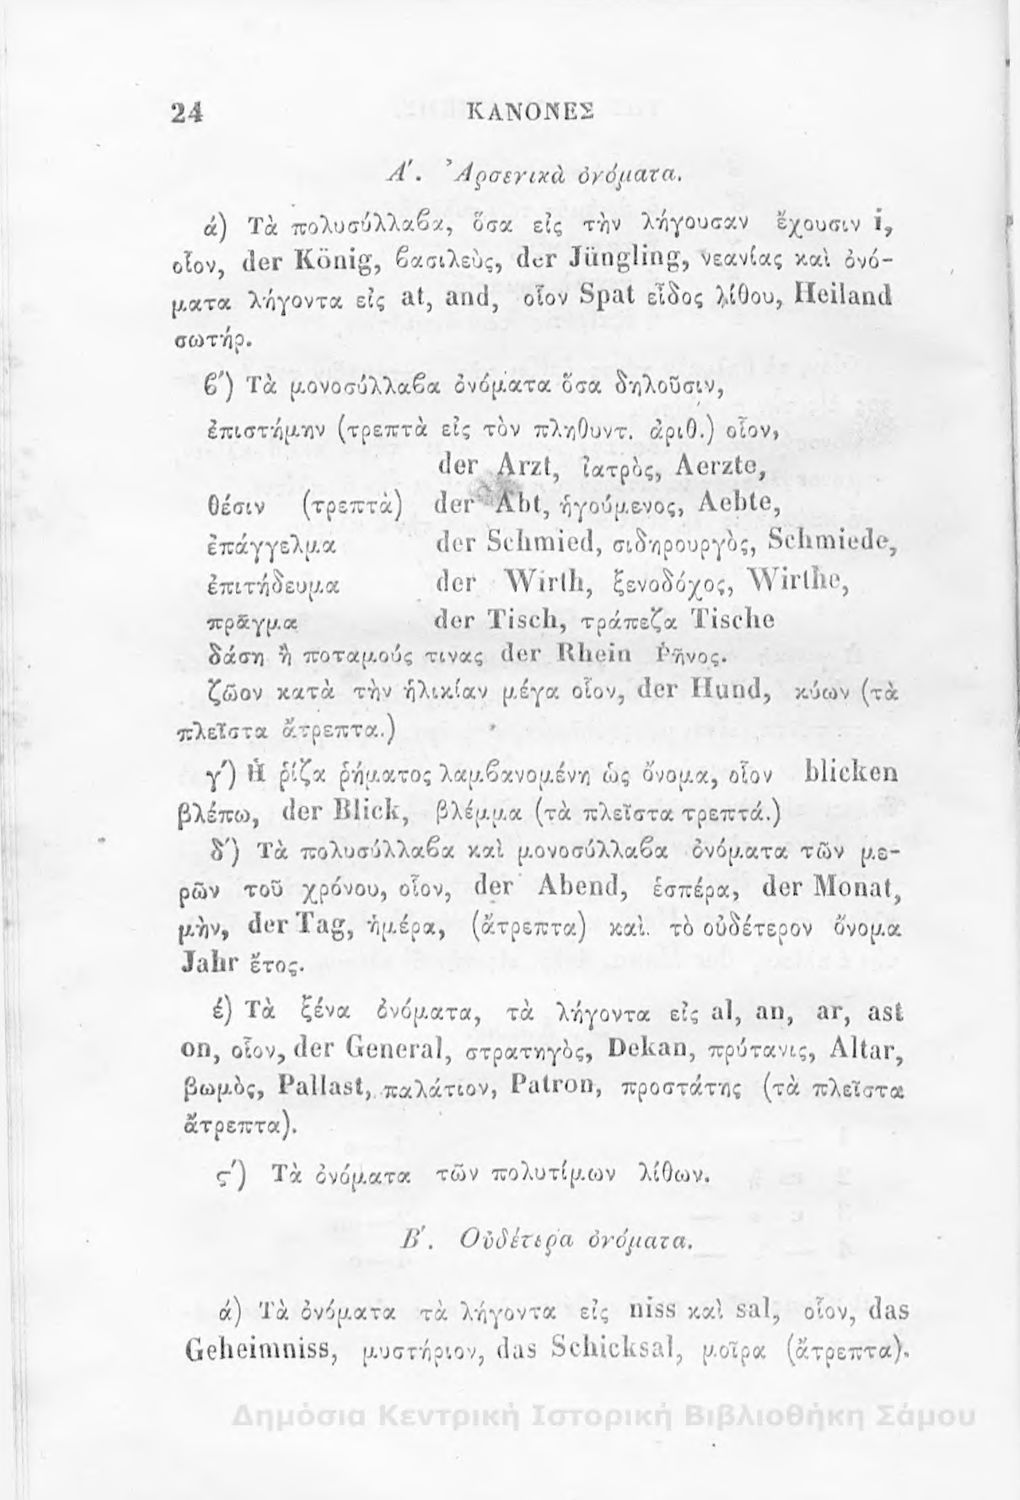 24 ΚΑΝΟΝΕΣ
Α'. Ἀρσενικὰ ὀνόματα.
ά) Τὰ πολυσύλλαβα, ὅσα εἰς τὴν λήγουσαν ἔχουσιν i,
οἷον, der König, βασιλεὺς, der Jüngling, νεανίας καὶ ὀνό-
ματα λήγοντα εἰς at, and, οἷον Spat εἶδος λίθου, Heiland
σωτήρ.
β') Τὰ μονοσύλλαβα ὀνόματα ὅσα δηλοῦσιν,
ἐπιστήμην (τρεπτὰ εἰς τὸν πληθυντ. ἀριθ.) οἷον,
der Arzt, ἰατρὸς, Aerzte,
θέσιν (τρεπτὰ) der Abt, ἡγούμενος, Aebte,
ἐπάγγελμα der Schmied, σιδηρουργὸς, Schmiede,
ἐπιτήδευμα der Wirth, ξενοδόχος, Wirthe,
πρᾶγμα der Tisch, τράπεζα Tische
δάση ἢ ποταμούς τινας der Rhein Ῥῆνος.
ζῶον κατὰ τὴν ἡλικίαν μέγα οἷον, der Hund, κύων (τὰ
πλεῖστα ἄτρεπτα.)
γ') Ἡ ῥίζα ῥήματος λαμβανομένη ὡς ὄνομα, οἷον blicken
βλέπω, der Blick, βλέμμα (τὰ πλεῖστα τρεπτά.)
δ') Τὰ πολυσύλλαβα καὶ μονοσύλλαβα ὀνόματα τῶν με-
ρῶν τοῦ χρόνου, οἷον, der Abend, ἑσπέρα, der Monat,
μὴν, der Tag, ἡμέρα, (ἄτρεπτα) καὶ. τὸ οὐδέτερον ὄνομα
Jahr ἔτος.
έ) Τὰ ξένα ὀνόματα, τὰ λήγοντα εἰς al, an, ar, ast
on, οἷον, der General, στρατηγὸς, Dekan, πρύτανις, Altar,
βωμὸς, Pallast, παλάτιον, Patron, προστάτης (τὰ πλεῖστα
ἄτρεπτα).
ς') Τὰ ὀνόματα τῶν πολυτίμων λίθων.
Β'. Οὐδέτερα ὀνόματα.
ά) Τὰ ὀνόματα τὰ λήγοντα εἰς niss καὶ sal, οἷον, das
Geheimniss, μυστήριον, das Schicksal, μοῖρα (ἄτρεπτα).
Δημόσια Κεντρική Ιστορική Βιβλιοθήκη Σάμου